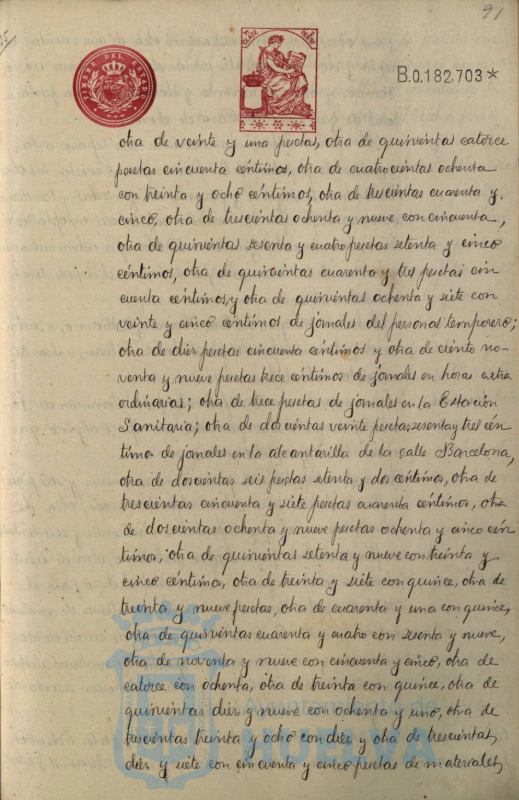 91
8ª CLASE 1 PESETA
TIMBRE DEL ESTADO
B.0.182,703*
otra de veinte y una pesetas, otra de quinientas catorce
pesetas cincuenta céntimos, otra de cuatrocientas ochenta
con treinta y ocho céntimos, otra de trescientas cuarenta y
cinco, otra de trescientas ochenta y nueve con cincuenta,
otra de quinientas sesenta y cuatro pesetas setenta y cinco
céntimos, otra de quinientas cuarenta y tres pesetas cin
cuenta céntimos y otra de quinientas ochenta y siete con
veinte y cinco céntimos de jornales del personal temporero;
otra de diez pesetas cincuenta céntimos y otra de ciento no-
venta y nueve pesetas trece céntimos de jornales en horas extra
ordinarias; otra de trece pesetas de jornales en la Estación
Sanitaria; otra de doscientas veinte pesetas sesenta y tres cén
timos de jornales en la alcantarilla de la calle Barcelona,
otra de doscientas seis pesetas setenta y dos céntimos, otra de
trescientas cincuenta y siete pesetas cuarenta céntimos, otra
de doscientas ochenta y nueve pesetas ochenta y cinco cén
timos, otra de quinientas setenta y nueve con treinta y
cinco céntimos, otra de treinta y siete con quince, otra de
treinta y nueve pesetas, otra de cuarenta y una con quince,
otra de quinientas cuarenta y cuatro con sesenta y nueve,
otra de noventa y nueve con cincuenta y cinco, otra de
catorce con ochenta, otra de treinta con quince, otra de
quinientas diez y nueve con ochenta y uno, otra de
trescientas treinta y ocho con diez y otra de trescientas
diez y siete con cincuenta y cinco pesetas de materiales,
HUELVA